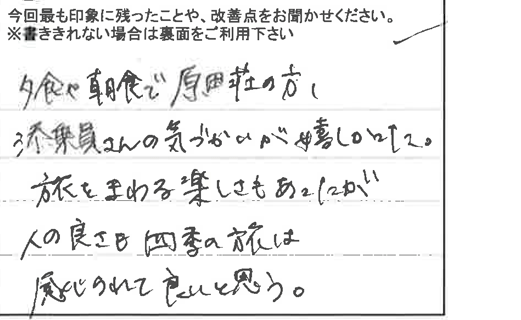 今回最も印象に残ったことや、改善点をお聞かせください。
※書ききれない場合は裏面をご利用下さい
夕食や朝食で原田荘の方、
添乗員さんの気づかいが嬉しかった。
旅をまわる楽しさもあったが
人の良さも四季の旅は
感じのれて良いと思う。